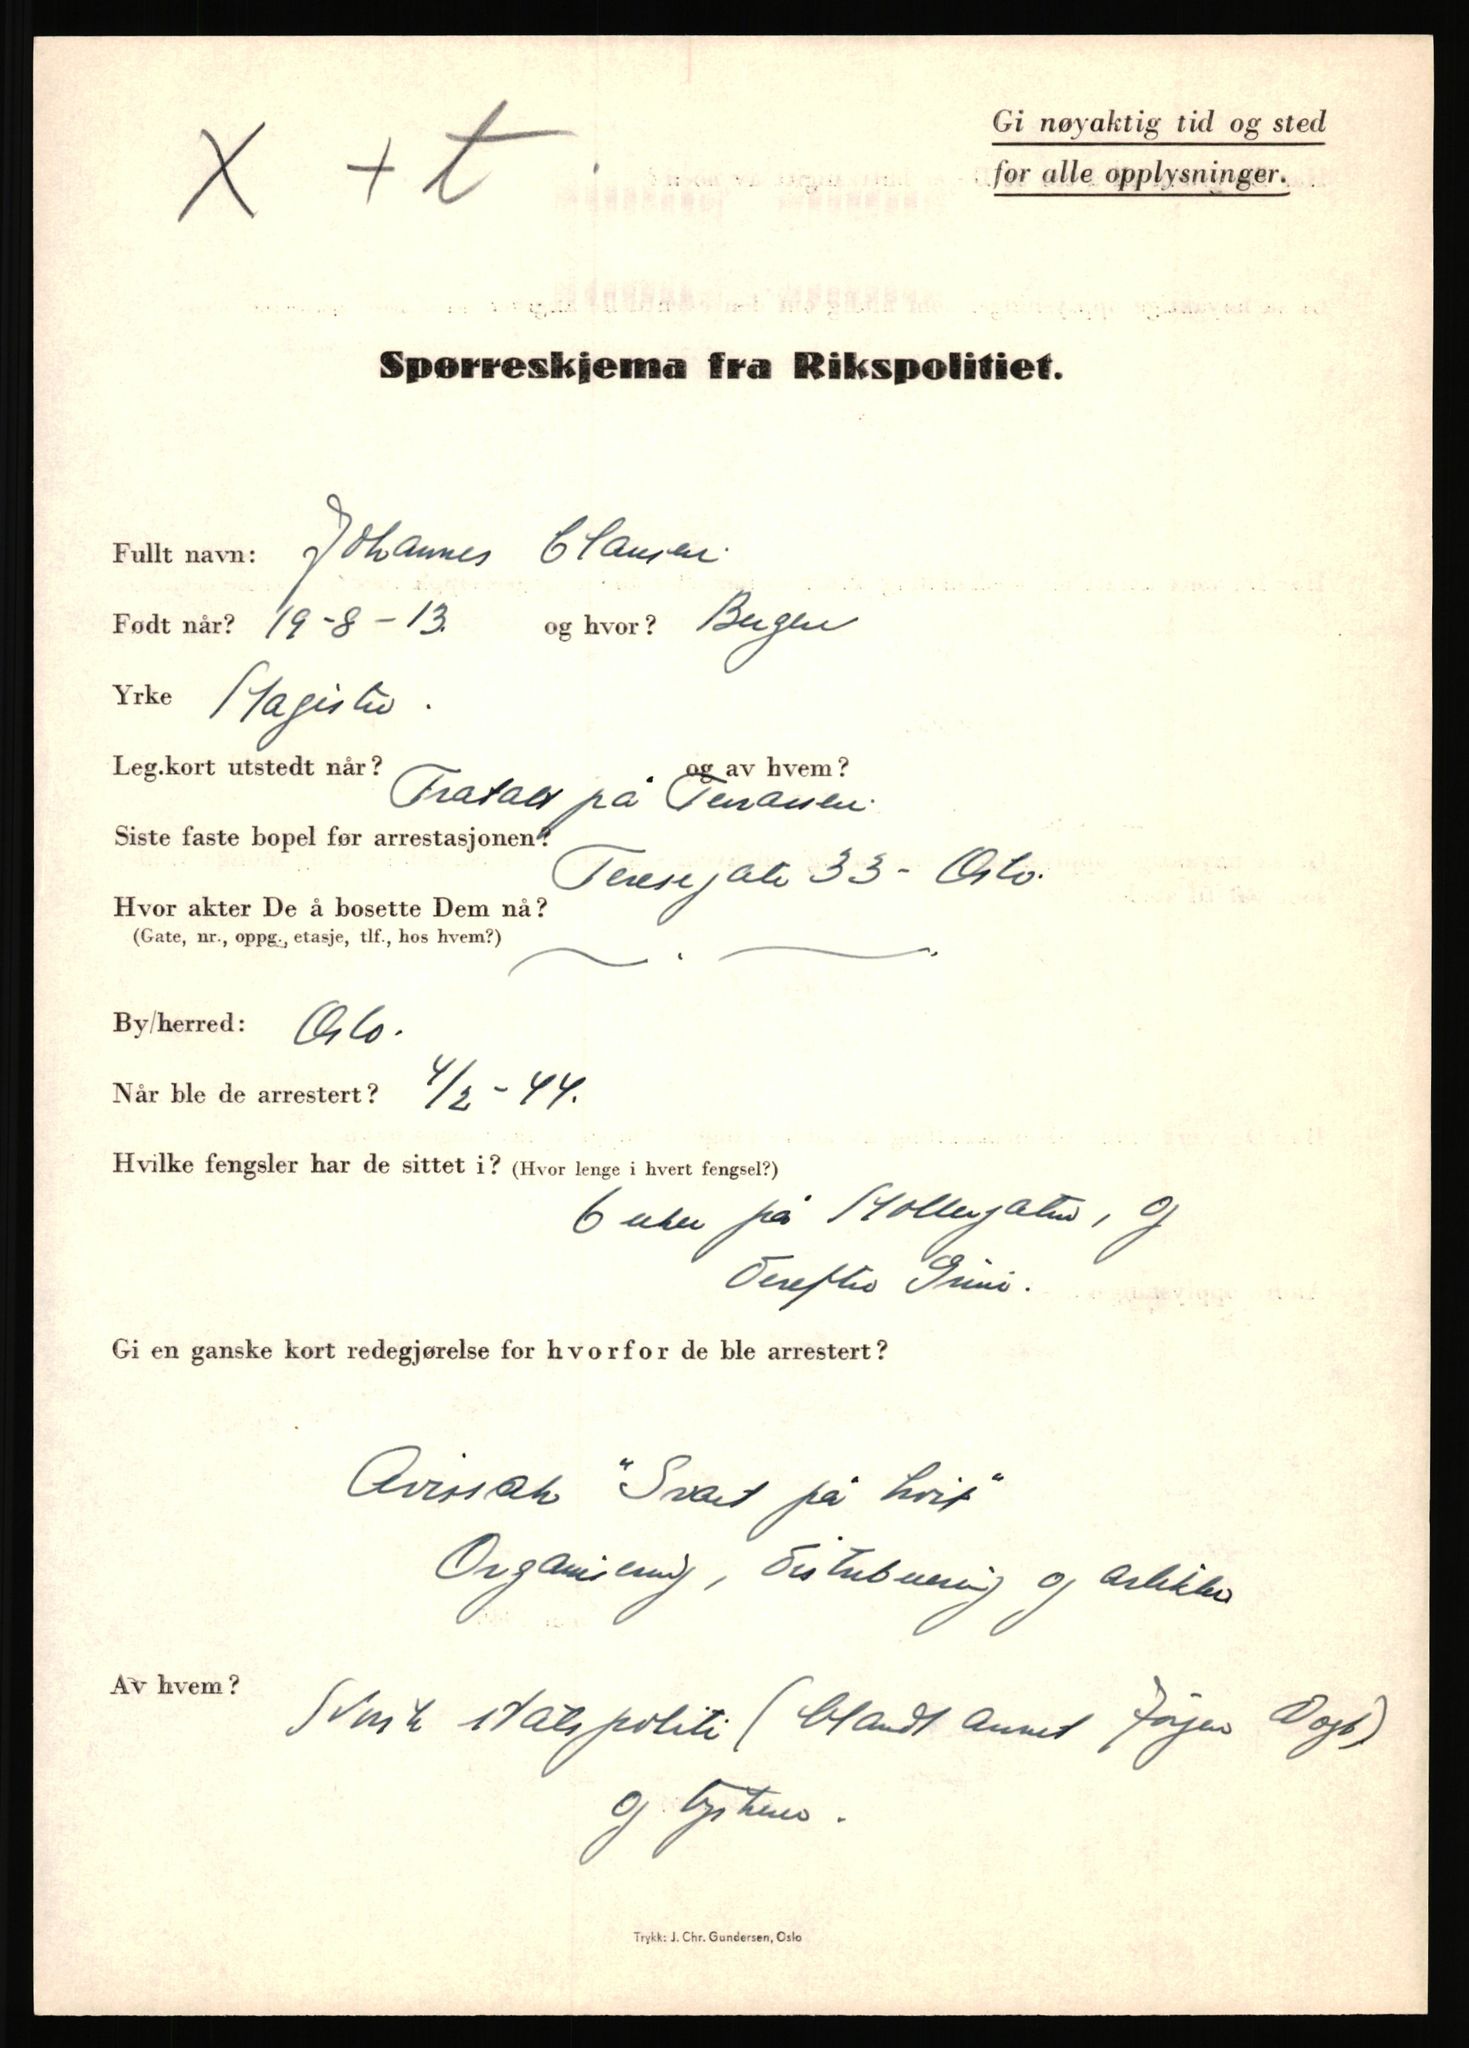 X + t .
Gi nøyaktig tid og sted
for alle opplysninger.
Spørreskjema fra Rikspolitiet.
Fullt navn: Johannes Clausen.
Født når? 19-8-13. og hvor? Bergen
Yrke Magister.
Leg.kort utstedt når? og av hvem?
Fratatt på Terassen.
Siste faste bopel før arrestasjonen?
Teresegate 33 - Oslo.
Hvor akter De å bosette Dem nå?
(Gate, nr., oppg., etasje, tlf., hos hvem?)
By/herred: Oslo.
Når ble de arrestert? 4/2-44.
Hvilke fengsler har de sittet i? (Hvor lenge i hvert fengsel?)
6 uker på Møllergaten, og
derefter Grini.
Gi en ganske kort redegjørelse for hvorfor de ble arrestert?
Avissak "Svart på hvit"
Organisering, distribuering og artikler
Av hvem? Norsk statspoliti (blandt annet Jørgen Vogt)
og tyskere.
Trykk: J. Chr. Gundersen, Oslo